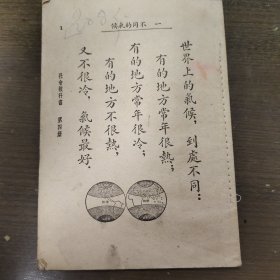 一 不同的氣候
世界上的氣候，到處不同：
有的地方常年很熱；
有的地方常年很冷；
有的地方不很熱，
又不很冷，氣候最好。
社會教科書 第四冊